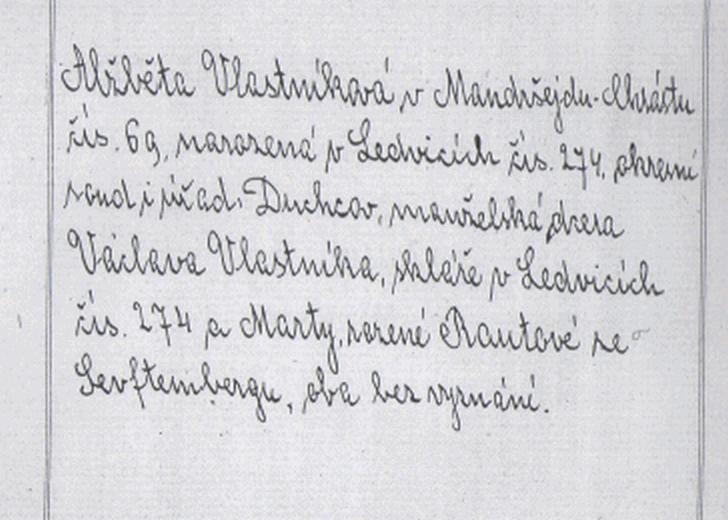 Alžběta Vlastníková v Mandršejdu-Chrástu
čís. 69, narozená v Ledvicích čís. 274, okresní
soud i úřad Duchcov, manželská dcera
Václava Vlastníka, skláře v Ledvicích
čís. 274 a Marty, rozené Rautové ze
Senftembergu, oba bez vyznání.